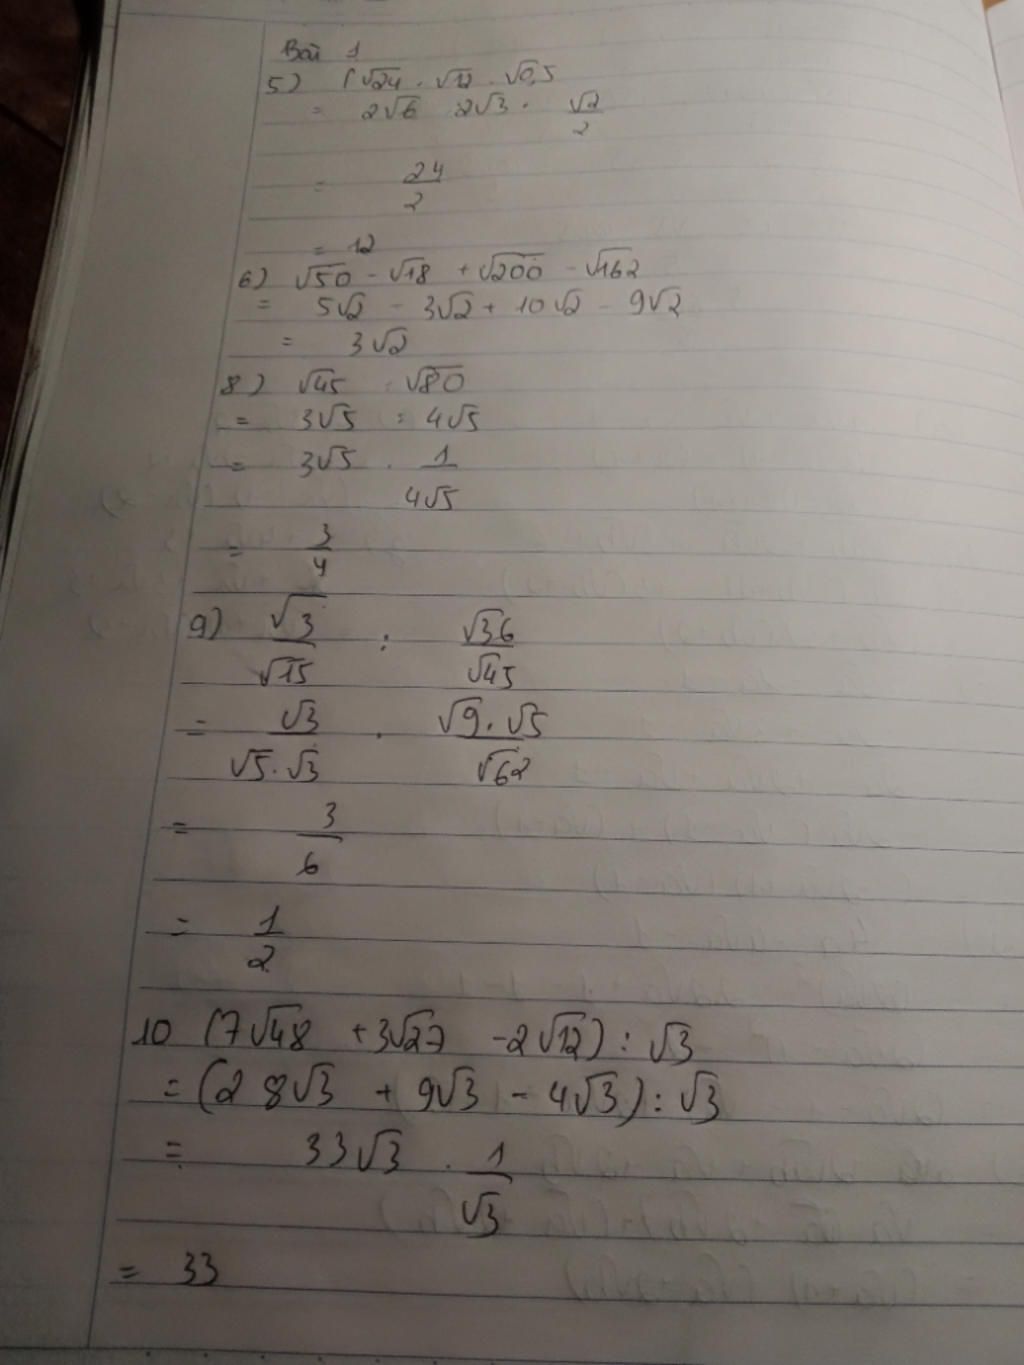 Bài 1
5) (√24 . √12 . √0,5
= 2√6 . 2√3 . √2/2
= 24/2
= 12
6) √50 - √18 + √200 - √162
= 5√2 - 3√2 + 10√2 - 9√2
= 3√2
8) √45 : √80
= 3√5 : 4√5
= 3√5 . 1/4√5
= 3/4
9) √3/√15 : √36/√45
= √3/√5.√3 . √9.√5/√6²
= 3/6
= 1/2
10 (7√48 + 3√27 - 2√12) : √3
= (28√3 + 9√3 - 4√3) : √3
= 33√3 . 1/√3
= 33